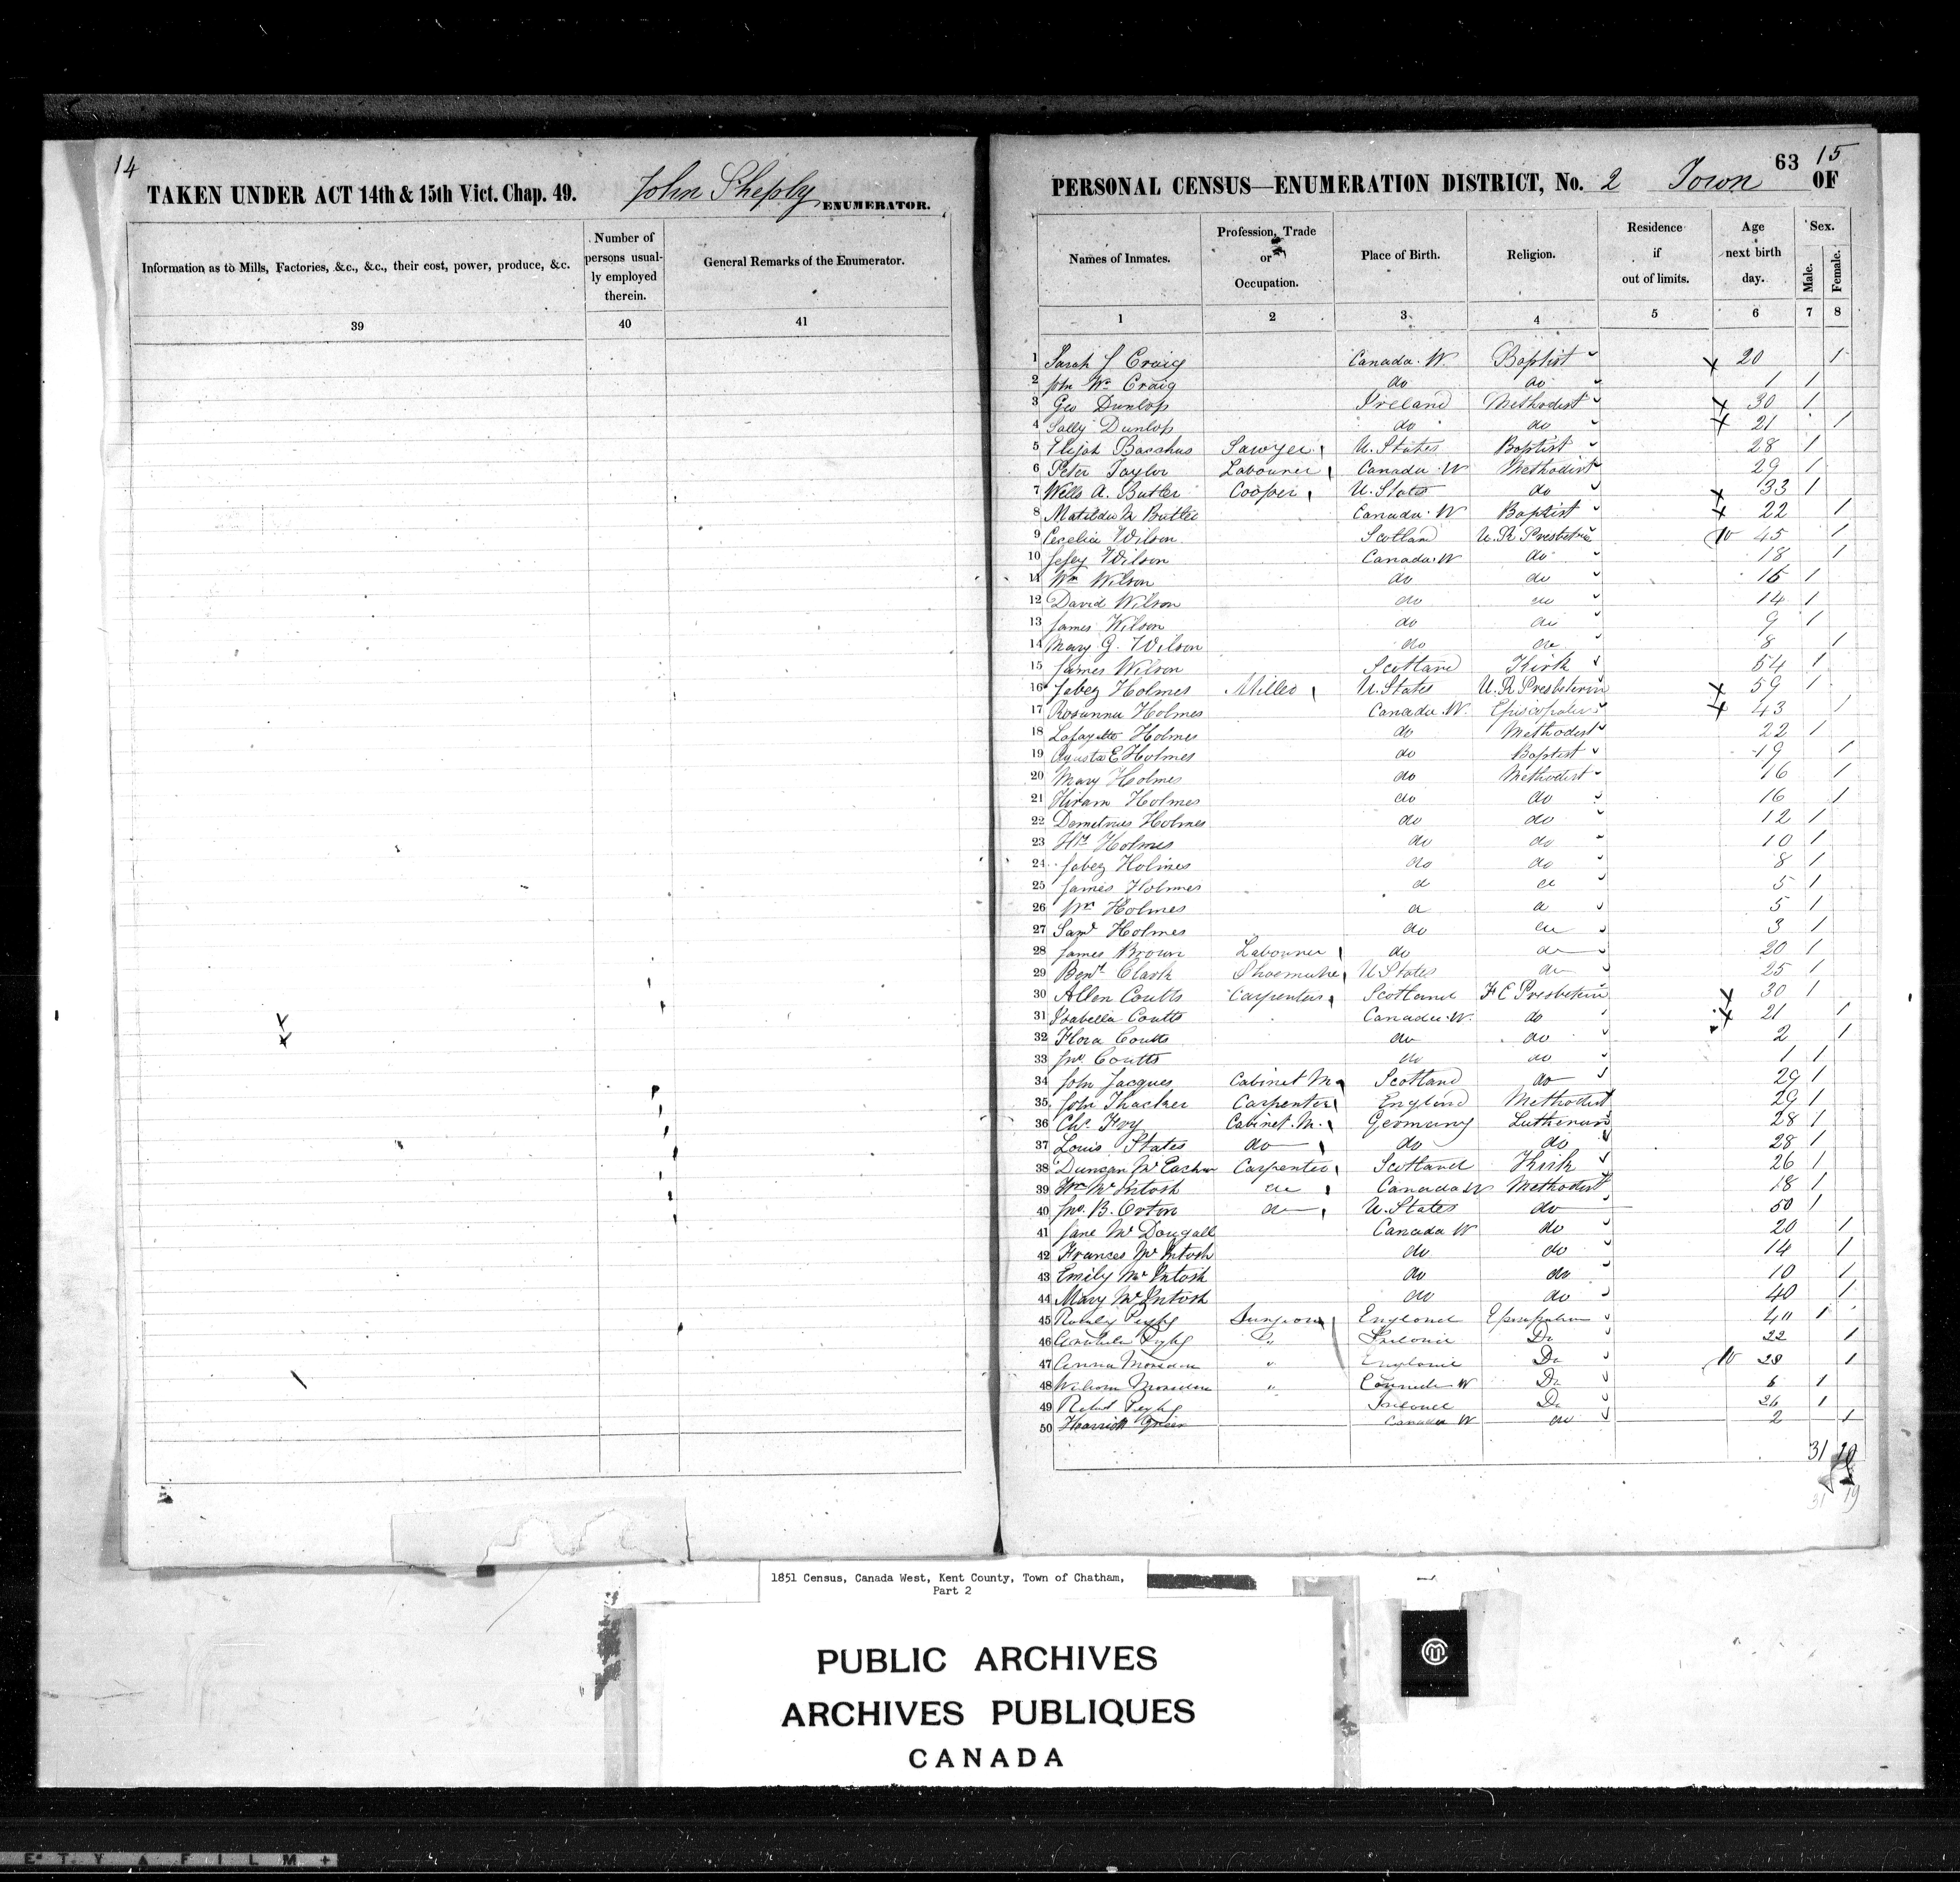 14
TAKEN UNDER ACT 14th & 15th Vict. Chap. 49. John Shepley ENUMERATOR.
Information as to Mills, Factories, &c., &c., their cost, power, produce, &c. Number of persons usually employed therein. General Remarks of the Enumerator.
39 40 41
63 15
PERSONAL CENSUS—ENUMERATION DISTRICT, No. 2 Town OF
Names of Inmates. Profession, Trade or Occupation. Place of Birth. Religion. Residence if out of limits. Age next birth day. Sex. Male. Female.
1 2 3 4 5 6 7 8
1 Sarah J Craig Canada W. Baptist 20 1
2 John Wm Craig do do 1 1
3 Geo Dunlop Ireland Methodist 30 1
4 Sally Dunlop do do 21 1
5 Elijah Bacchus Sawyer U. States Baptist 28 1
6 Peter Taylor Labourer Canada W Methodist 29 1
7 Wells A. Butler Cooper U. States do 33 1
8 Matilda M Butler Canada W Baptist 22 1
9 Cecelia Wilson Scotland U. P. Presbeterin W 45 1
10 Jessy Wilson Canada W do 18 1
11 Wm Wilson do do 16 1
12 David Wilson do do 14 1
13 James Wilson do do 9 1
14 Mary G. Wilson do do 8 1
15 James Wilson Scotland Kirk 54 1
16 Jabez Holmes Miller U. States U. P. Presbeterin 59 1
17 Rosanna Holmes Canada W. 43 1
18 Lafayette Holmes do Methodist 22 1
19 Agusta E Holmes do Baptist 19 1
20 Mary Holmes do Methodist 16 1
21 Hiram Holmes do do 16 1
22 Demetrius Holmes do do 12 1
23 Holmes do do 10 1
24 Jabez Holmes do do 8 1
25 James Holmes d d 5 1
26 Wm Holmes d d 5 1
27 Saml Holmes do do 3 1
28 James Brown Labourer do do 20 1
29 Benj. Clark Shoemaker U States do 25 1
30 Allen Coutts Carpenter Scotland F C Presbeterin 30 1
31 Isabella Coutts Canada W. do 21 1
32 Flora Coutts do do 2 1
33 Jno Coutts do do 1 1
34 John Jacques Cabinet M Scotland do 29 1
35 John Thacker Carpenter England Methodist 29 1
36 Chs. Fry Cabinet M. Germany Lutheran 28 1
37 Louis States do do do 28 1
38 Duncan McEachern Carpenter Scotland Kirk 26 1
39 Wm McIntosh do Canada W Methodist 18 1
40 Jno. B. Orton do U. States do 50 1
41 Jane McDougall Canada W do 20 1
42 Frances McIntosh do do 14 1
43 Emily McIntosh do do 10 1
44 Mary McIntosh do do 40 1
45 Surgeon England 40 1
46 Do Ireland Do 22 1
47 Anna " England Do W 28 1
48 " Canada W Do 6 1
49 Ireland Do 26 1
50 Harriett Green Canada W do 2 1
31 20
31 19
1851 Census, Canada West, Kent County, Town of Chatham,
Part 2
PUBLIC ARCHIVES
ARCHIVES PUBLIQUES
CANADA
E T Y A F I L M +